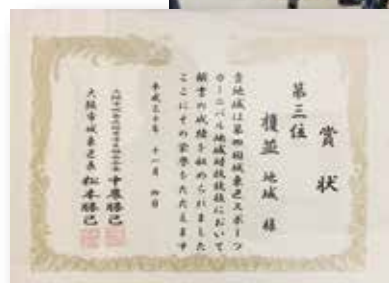 賞状
第三位
榎並地域 様
貴地域は第四回城東区スポーツ
カーニバル地域対抗競技において
頭書の成績を収められました
ここにその栄誉をたたえます
平成三十年 十一月 四日
大阪市城東区長 松本勝己